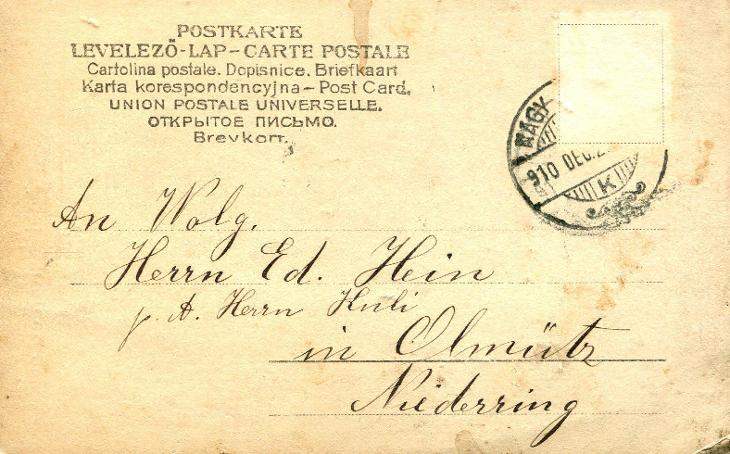 POSTKARTE
LEVELEZŐ-LAP–CARTE POSTALE
Cartolina postale. Dopisnice. Briefkaart
Karta korespondencyjna–Post Card.
UNION POSTALE UNIVERSELLE.
ОТКРЫТОЕ ПИСЬМО.
Brevkort.
NAGY
910 DEC.2
K
An Wolg.
Herrn Ed. Hein
p. A. Herrn Kuli
in Olmütz
Niederring